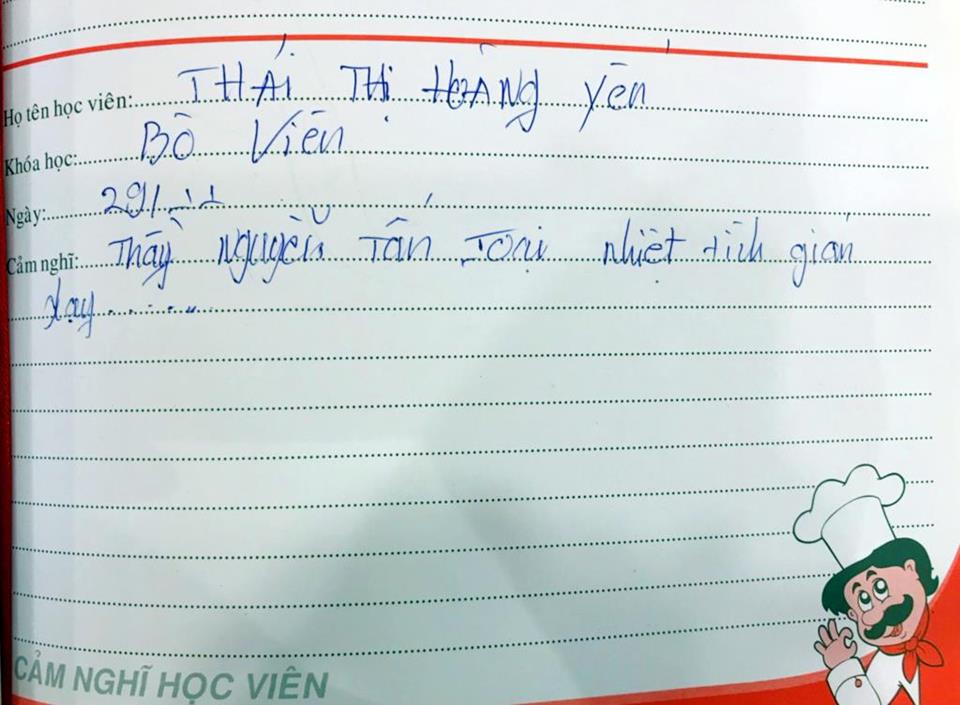 Họ tên học viên: THÁI THỊ HOÀNG YẾN
Khóa học: BÒ Viên
Ngày: 29/11
Cảm nghĩ: Thầy Nguyễn Tấn Toại nhiệt tình giản
dạy
CẢM NGHĨ HỌC VIÊN